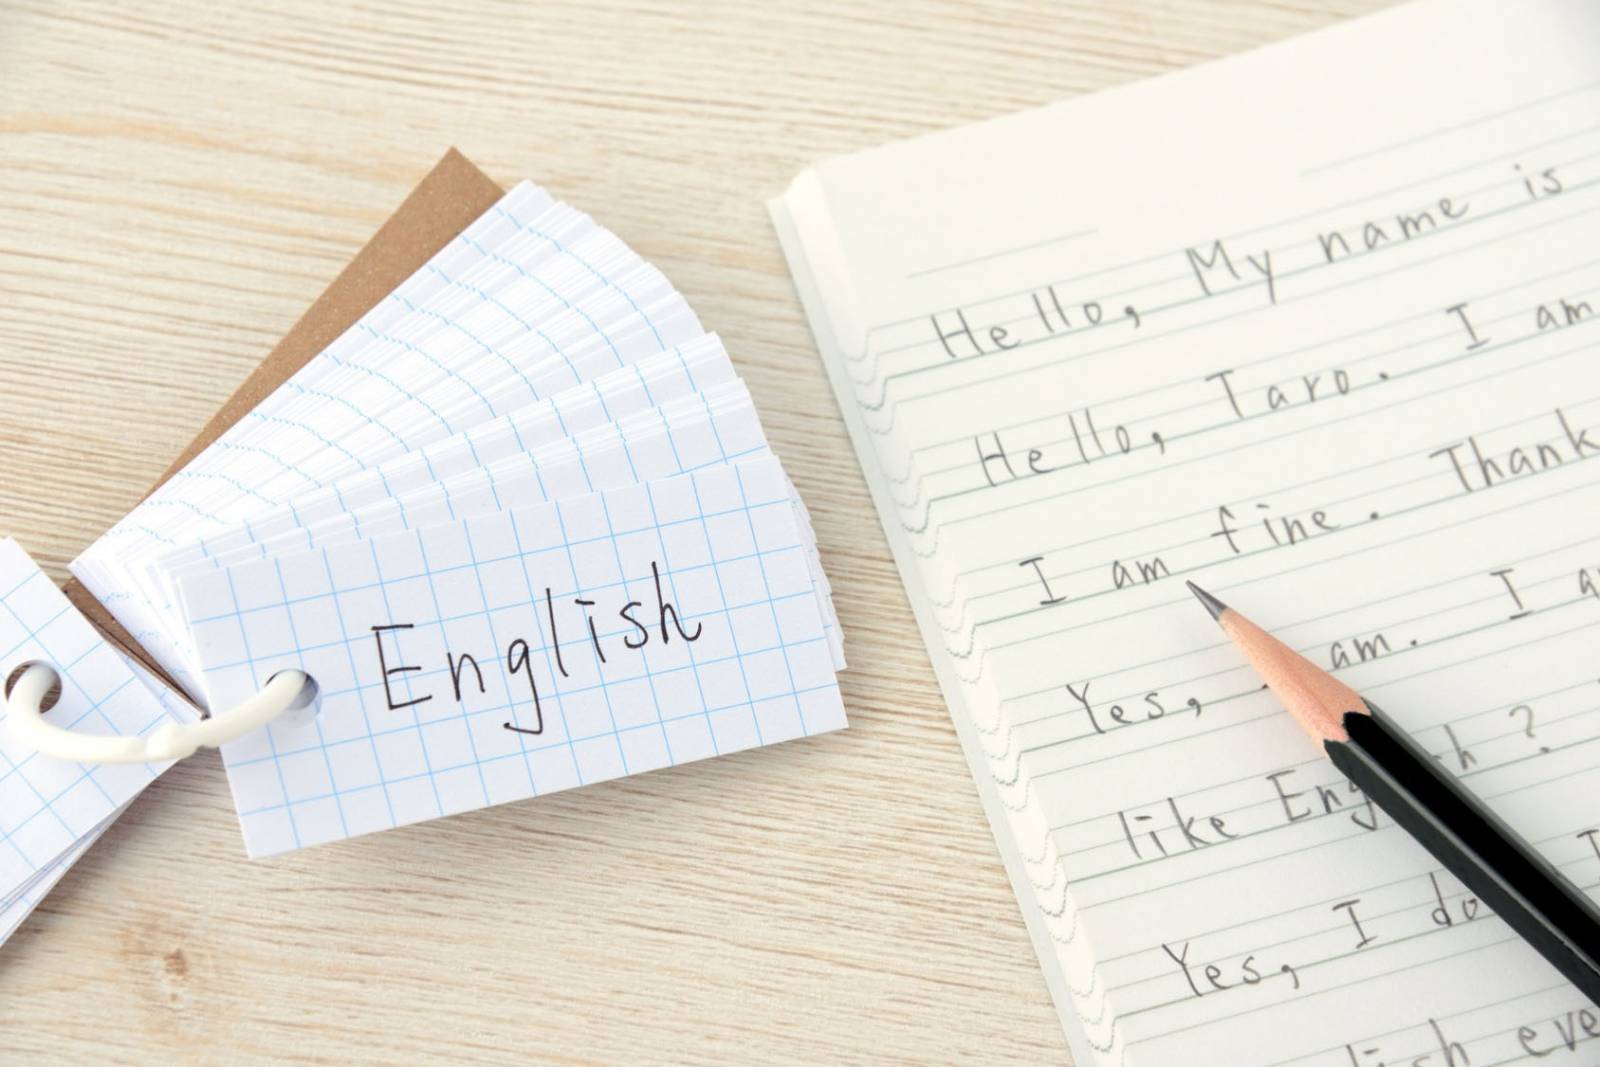 English
Hello, My name is
Hello, Taro. I am
I am fine. Thank
Yes, am. I
like English?
Yes, I do
eve